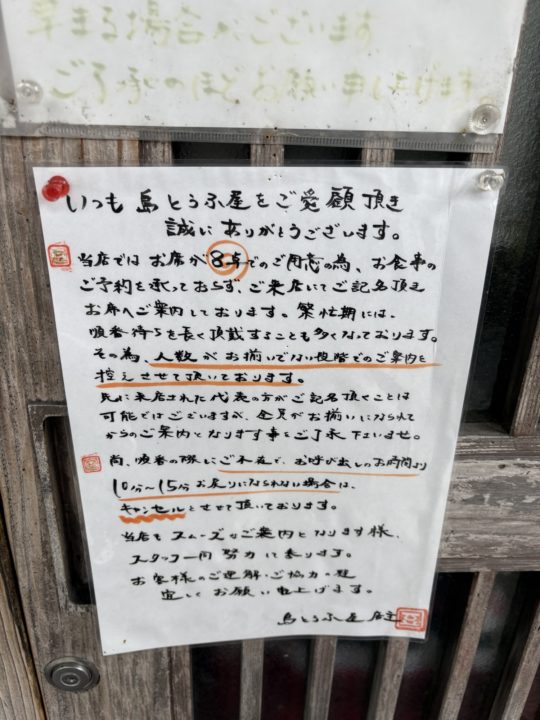 早まる場合がございます
ご了承のほどお願い申し上げます
いつも島とうふ屋をご愛顧頂き
誠にありがとうございます。
当店ではお席が8卓でのご用意の為、お食事の
ご予約を承っておらず、ご来店にてご記名頂き
お席へご案内しております。繁忙期には、
順番待ちを長く頂戴することも多くなっております。
その為、人数がお揃いでない段階でのご案内を
控えさせて頂いております。
先に来店された代表の方がご記名頂くことは
可能ではございますが、全員がお揃いになられて
からのご案内となります事をご了承下さいませ。
尚、順番の際にご不在で、お呼び出しのお時間より
10分〜15分お戻りになられない場合は、
キャンセルとさせて頂いております。
当店もスムーズなご案内となります様、
スタッフ一同努力して参ります。
お客様のご理解・ご協力の程
宜しくお願い申し上げます。
島とうふ屋 店主